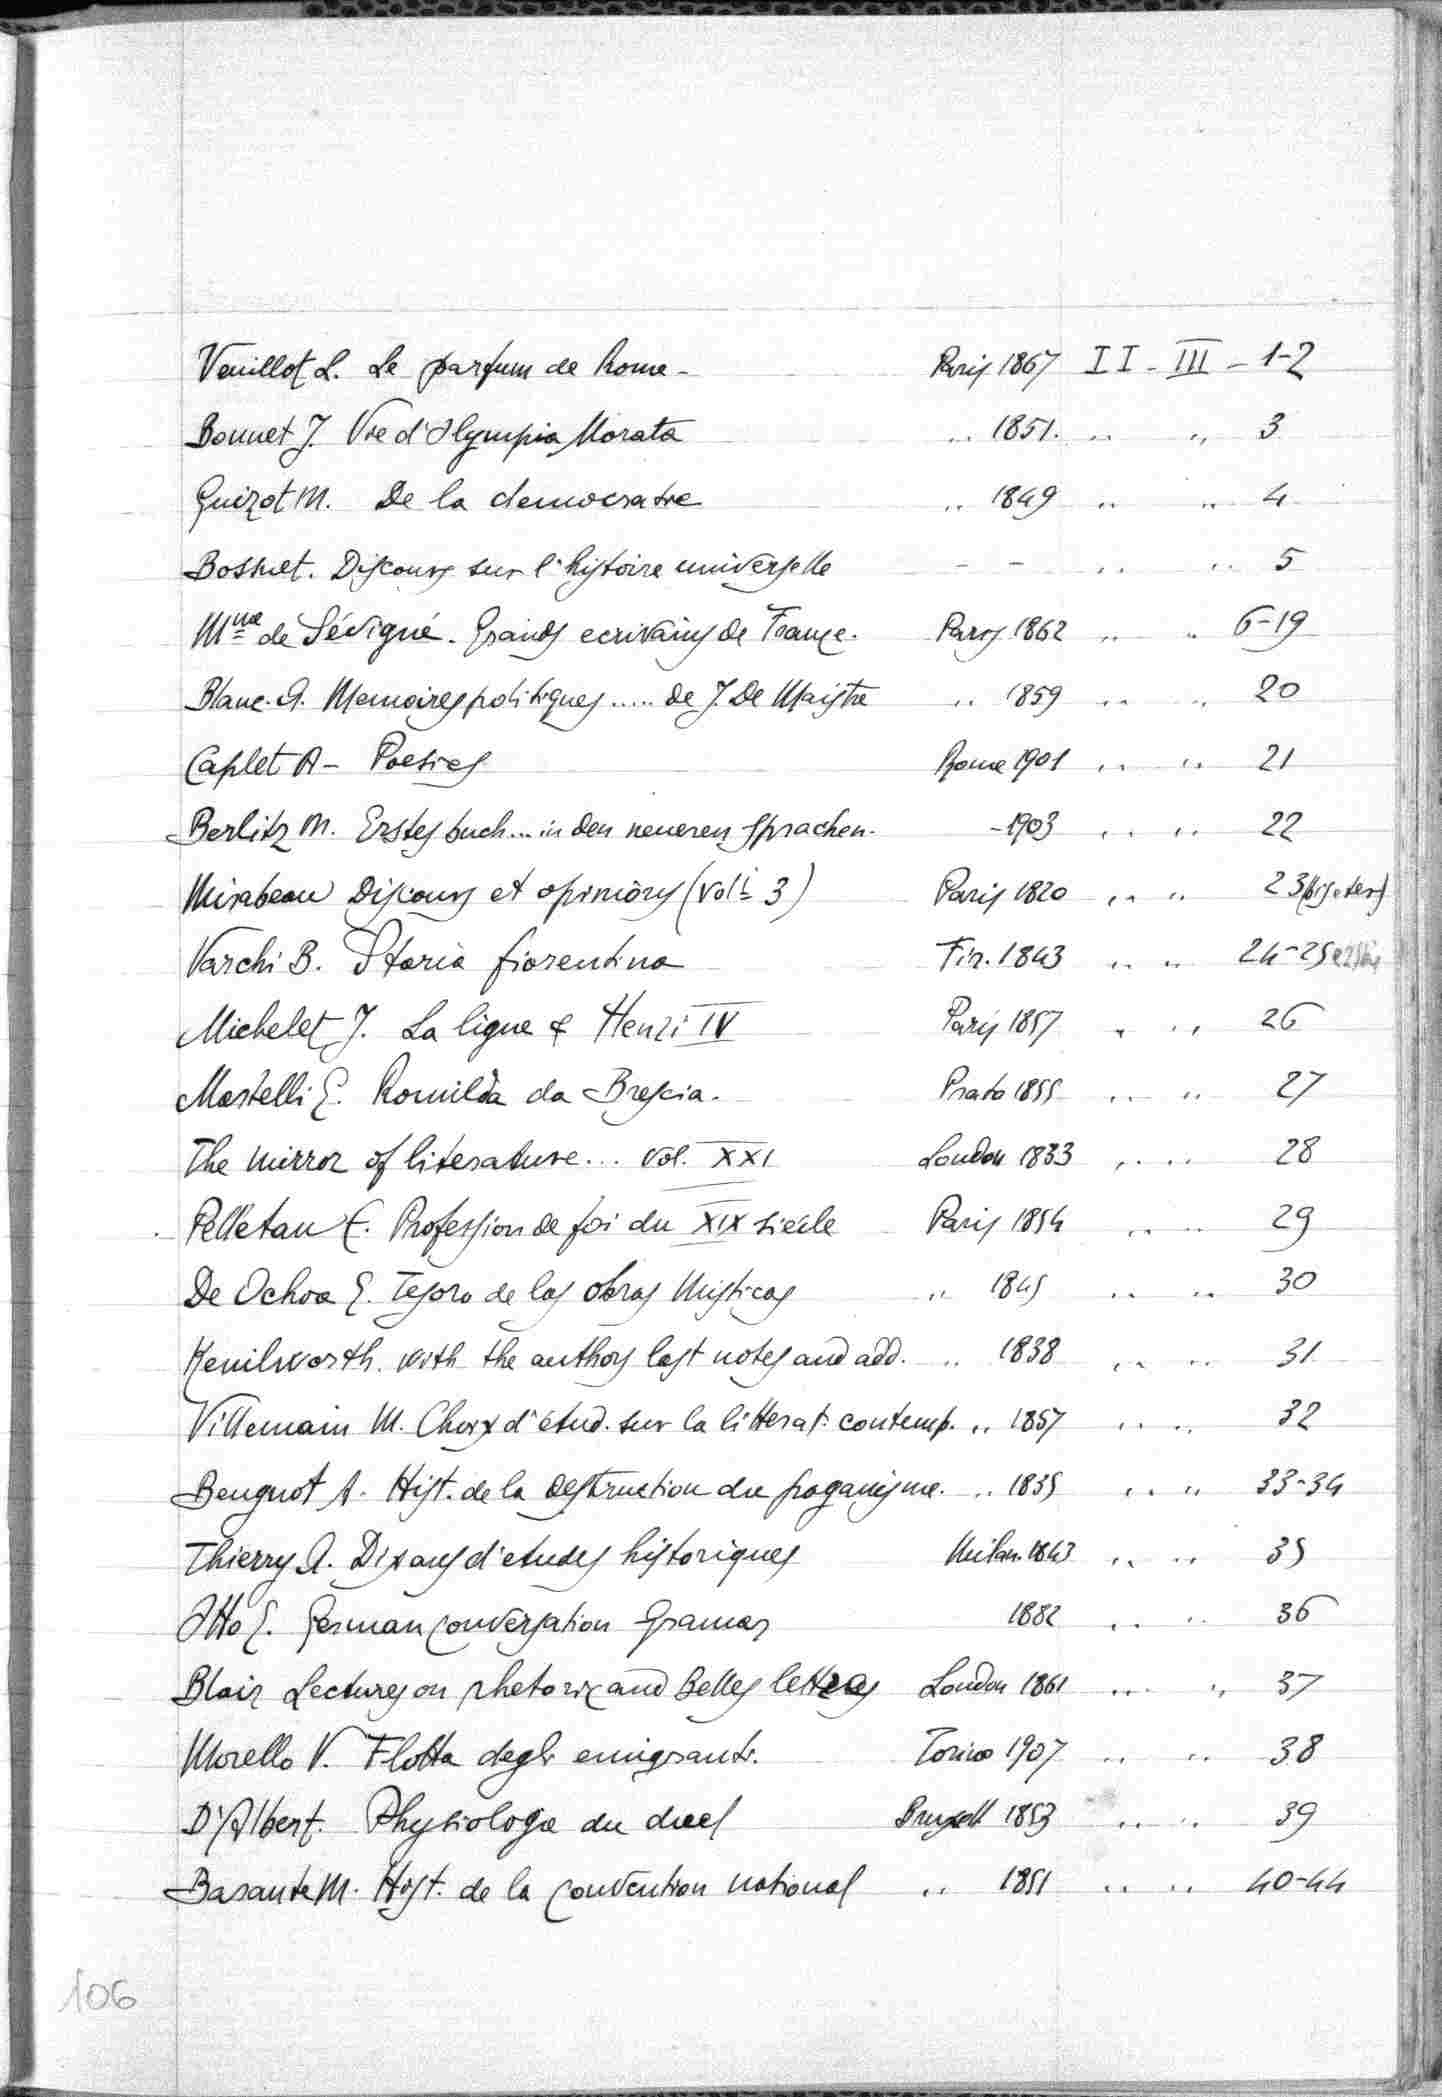 Veuillot L. Le parfum de Rome - Paris 1867 II - III - 1-2
Bonnet J. Vie d'Olympia Morata .. 1851. .. .. 3
Guizot M. De la democratie .. 1849 .. .. 4
Bossuet. Discours sur l'histoire universelle - - .. .. 5
Mme de Sévigné. Grands ecrivains de France. Paris 1862 .. .. 6-19
Blanc. A. Memoires politiques ..... de J. De Maistre .. 1859 .. .. 20
Caplet A - Poesies Rome 1901 .. .. 21
Berlitz M. Erstes buch... in den neueren Sprachen. - 1903 .. .. 22
Mirabeau Discours et opinions (voli 3) Paris 1820 .. .. 23 (bis e ter)
Varchi B. Storia fiorentina Fir. 1843 .. .. 24-25
Michelet J. La ligue & Henri IV Paris 1857 .. .. 26
Martelli E. Romilda da Brescia. Prato 1855 .. .. 27
The mirror of literature... vol. XXI London 1833 .. .. 28
Pelletan E. Profession de foi du XIX siècle Paris 1854 .. .. 29
De Ochoa E. Tesoro de las obras Misticas .. 1845 .. .. 30
Kenilworth. with the authors last notes and add. .. 1838 .. .. 31
Villemain M. Choix d'étud. sur la litterat. contemp. .. 1857 .. .. 32
Beugnot A. Hist. de la destruction du paganisme. .. 1835 .. .. 33-34
Thierry A. Dix ans d'etudes historiques Milan. 1843 .. .. 35
Otto E. German conversation Gramar 1882 .. .. 36
Blair Lectures on rhetoric and Belles lettres London 1861 .. .. 37
Morello V. Flotta degli emigranti. Torino 1907 .. .. 38
D'Albert. Physiologie du duel Bruxell 1853 .. .. 39
Barante M. Hist. de la convention national .. 1851 .. .. 40-44
106